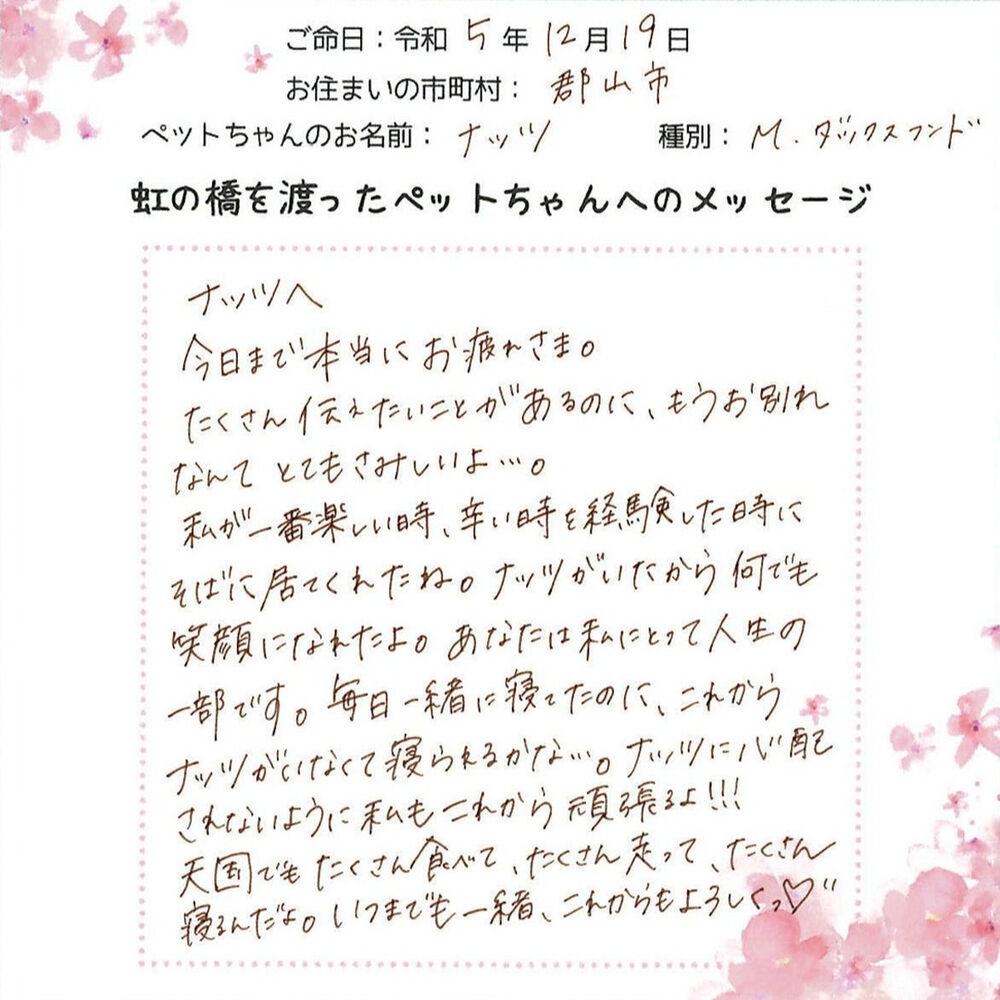 ご命日：令和 5 年 12月 19日
お住まいの市町村： 郡山市
ペットちゃんのお名前： ナッツ 種別： M.ダックスフンド
虹の橋を渡ったペットちゃんへのメッセージ
ナッツへ
今日まで本当にお疲れさま。
たくさん伝えたいことがあるのに、もうお別れ
なんて とてもさみしいよ…。
私が一番楽しい時、辛い時を経験した時に
そばに居てくれたね。ナッツがいたから何でも
笑顔になれたよ。あなたは私にとって人生の
一部です。毎日一緒に寝てたのに、これから
ナッツがいなくて寝られるかな…。ナッツに心配
されないように私もこれから頑張るよ!!!
天国でもたくさん食べて、たくさん走って、たくさん
寝るんだよ。いつまでも一緒、これからもよろしくっ♡"